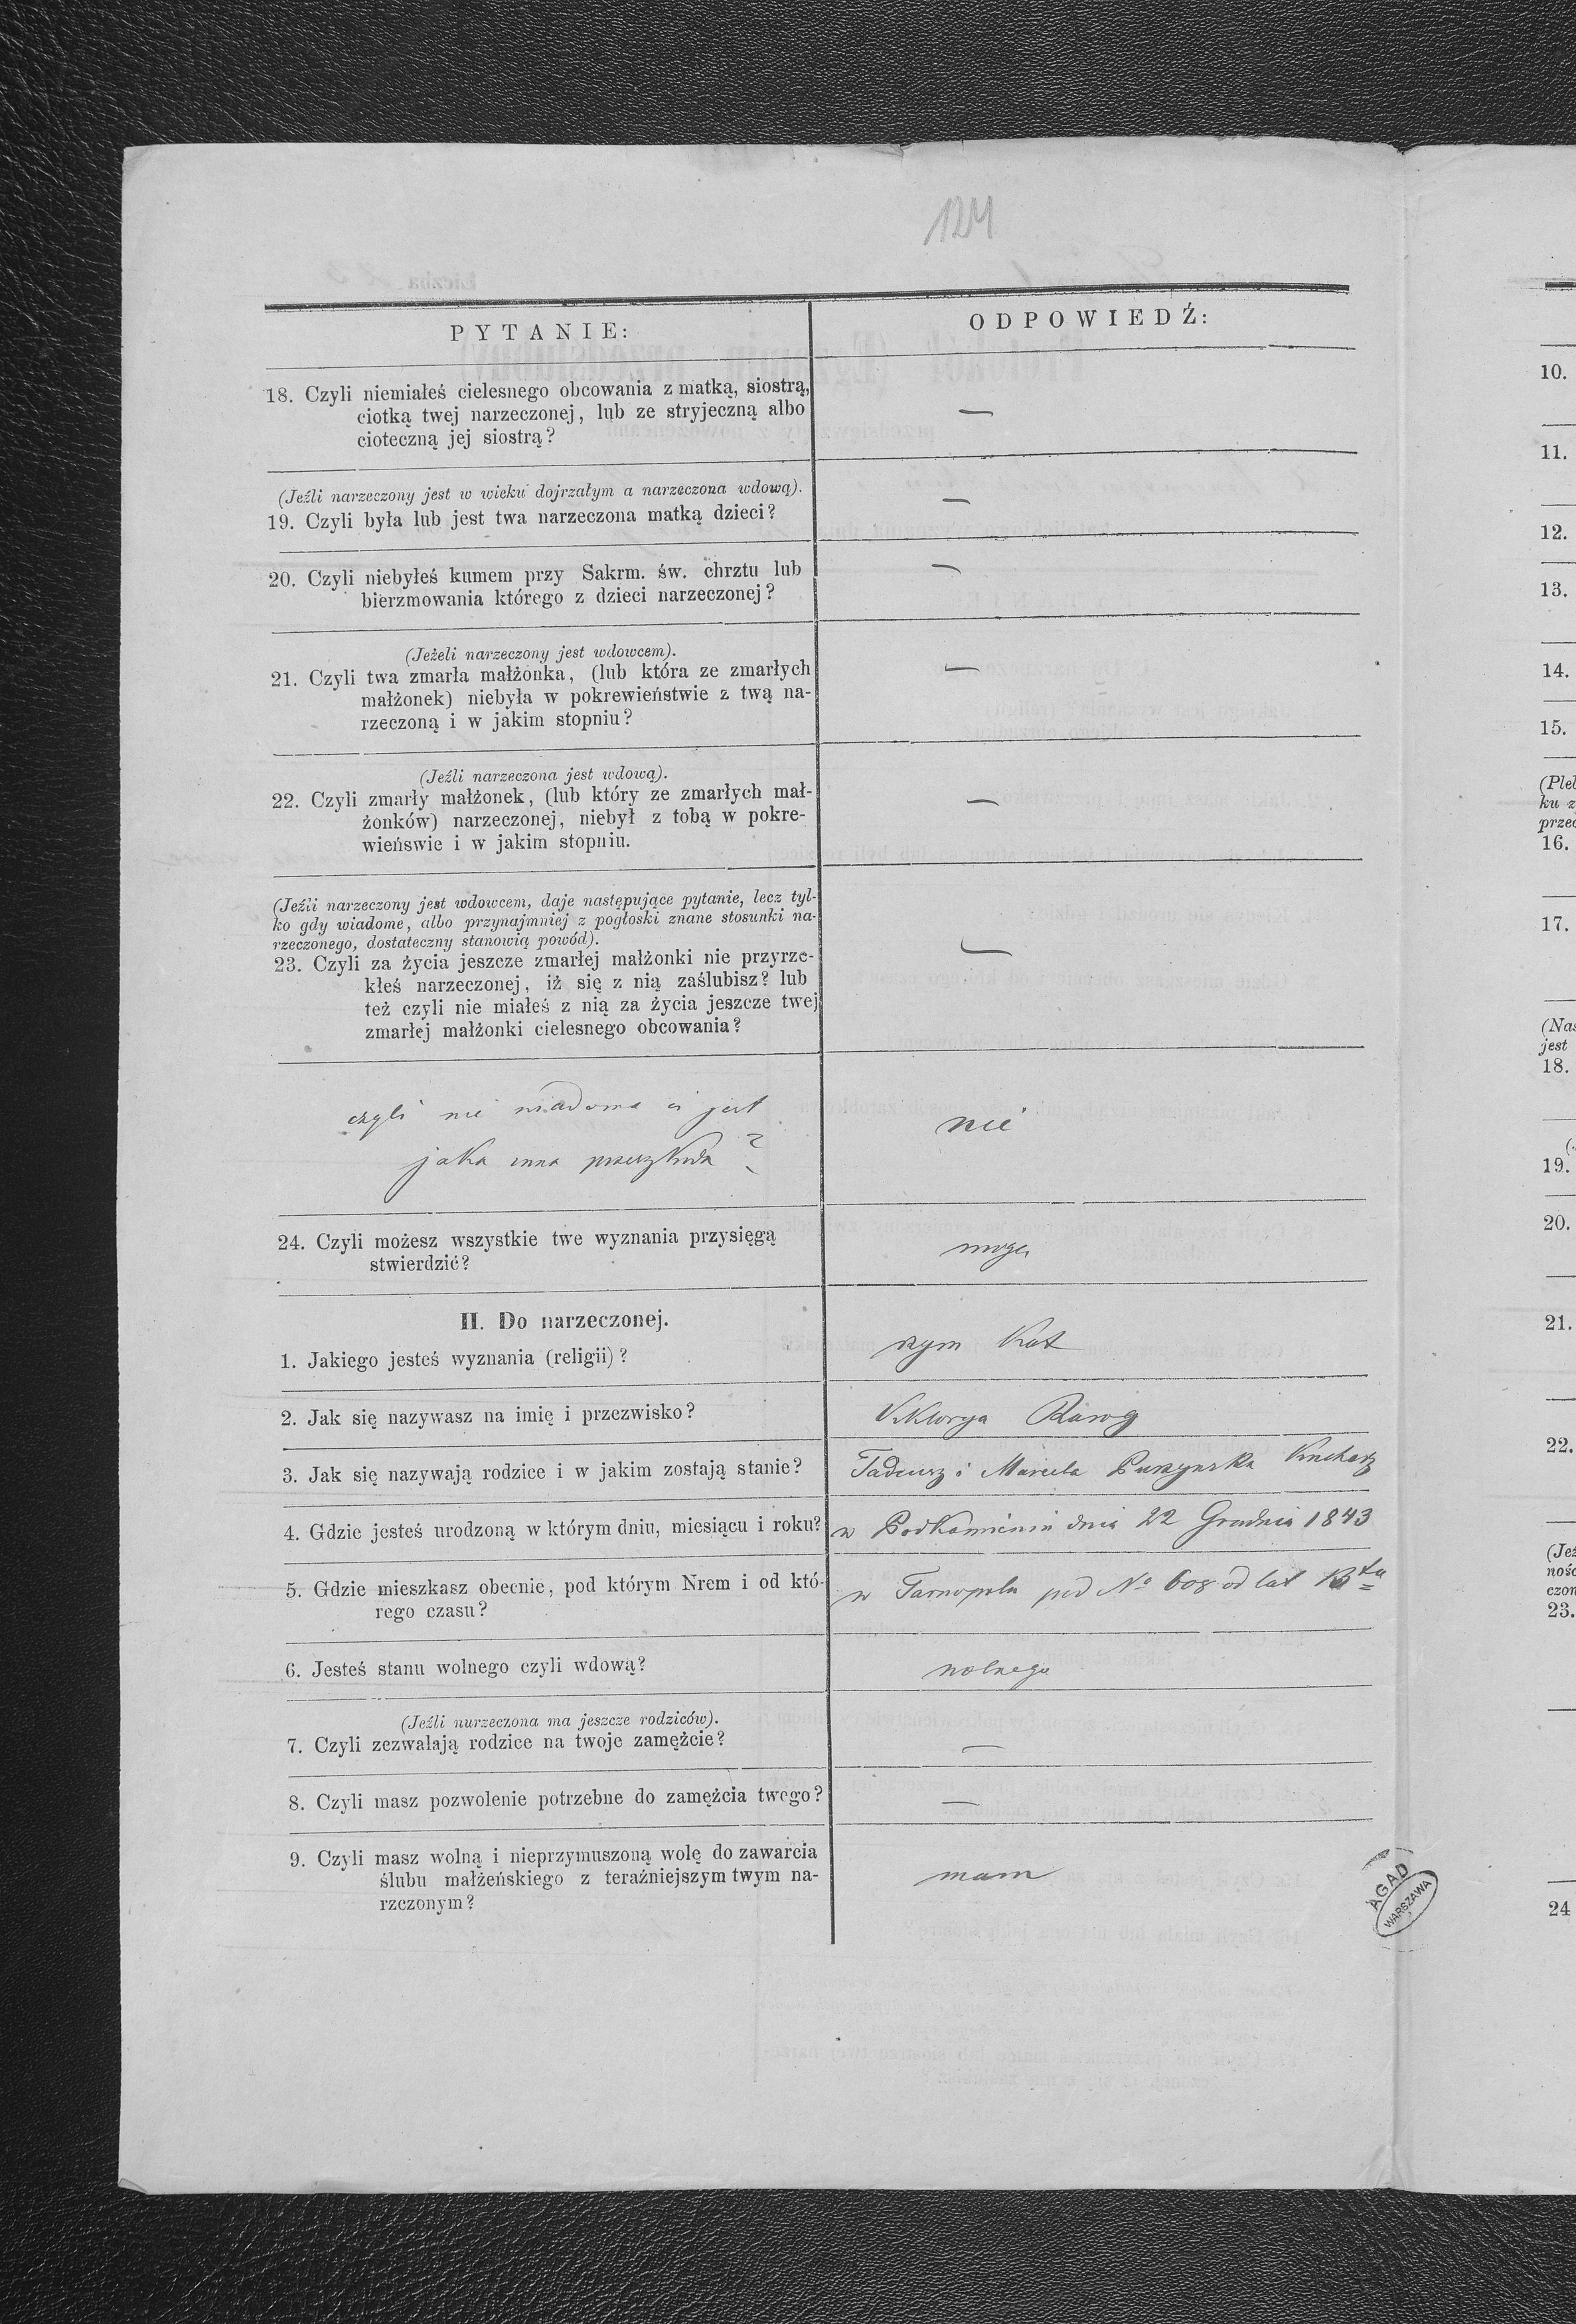 124
PYTANIE:
ODPOWIEDŹ:
18. Czyli niemiałeś cielesnego obcowania z matką, siostrą,
ciotką twej narzeczonej, lub ze stryjeczną albo
cioteczną jej siostrą?
—
(Jeźli narzeczony jest w wieku dojrzałym a narzeczona wdową).
19. Czyli była lub jest twa narzeczona matką dzieci?
—
20. Czyli niebyłeś kumem przy Sakrm. św. chrztu lub
bierzmowania którego z dzieci narzeczonej?
—
(Jeżeli narzeczony jest wdowcem).
21. Czyli twa zmarła małżonka, (lub która ze zmarłych
małżonek) niebyła w pokrewieństwie z twą na-
rzeczoną i w jakim stopniu?
—
(Jeźli narzeczona jest wdową).
22. Czyli zmarły małżonek, (lub który ze zmarłych mał-
żonków) narzeczonej, niebył z tobą w pokre-
wieńswie i w jakim stopniu.
—
(Jeźli narzeczony jest wdowcem, daje następujące pytanie, lecz tyl-
ko gdy wiadome, albo przynajmniej z pogłoski znane stosunki na-
rzeczonego, dostateczny stanowią powód).
23. Czyli za życia jeszcze zmarłej małżonki nie przyrze-
kłeś narzeczonej, iż się z nią zaślubisz? lub
też czyli nie miałeś z nią za życia jeszcze twej
zmarłej małżonki cielesnego obcowania?
—
czyli nie wiadoma ci jest
jaka inna przeszkoda?
nie
24. Czyli możesz wszystkie twe wyznania przysięgą
stwierdzić?
mogę
II. Do narzeczonej.
1. Jakiego jesteś wyznania (religii)?
rzym Kat
2. Jak się nazywasz na imię i przezwisko?
Viktorya Rarog
3. Jak się nazywają rodzice i w jakim zostają stanie?
Tadeusz i Marcela Kucharz
4. Gdzie jesteś urodzoną w którym dniu, miesiącu i roku?
w Podkamieniu dnia 22 Grudnia 1843
5. Gdzie mieszkasz obecnie, pod którym Nrem i od któ-
rego czasu?
w Tarnopolu pod No 608 od lat 13tu
6. Jesteś stanu wolnego czyli wdową?
wolnego
(Jeźli nurzeczona ma jeszcze rodziców).
7. Czyli zezwalają rodzice na twoje zamężcie?
—
8. Czyli masz pozwolenie potrzebne do zamężcia twego?
—
9. Czyli masz wolną i nieprzymuszoną wolę do zawarcia
ślubu małżeńskiego z teraźniejszym twym na-
rzczonym?
mam
AGAD
WARSZAWA
10.
11.
12.
13.
14.
15.
(Pleb
ku z
przed
16.
17.
(Nas
jest
18.
19.
20.
21.
22.
(Jeź
nośc
czon
23.
24